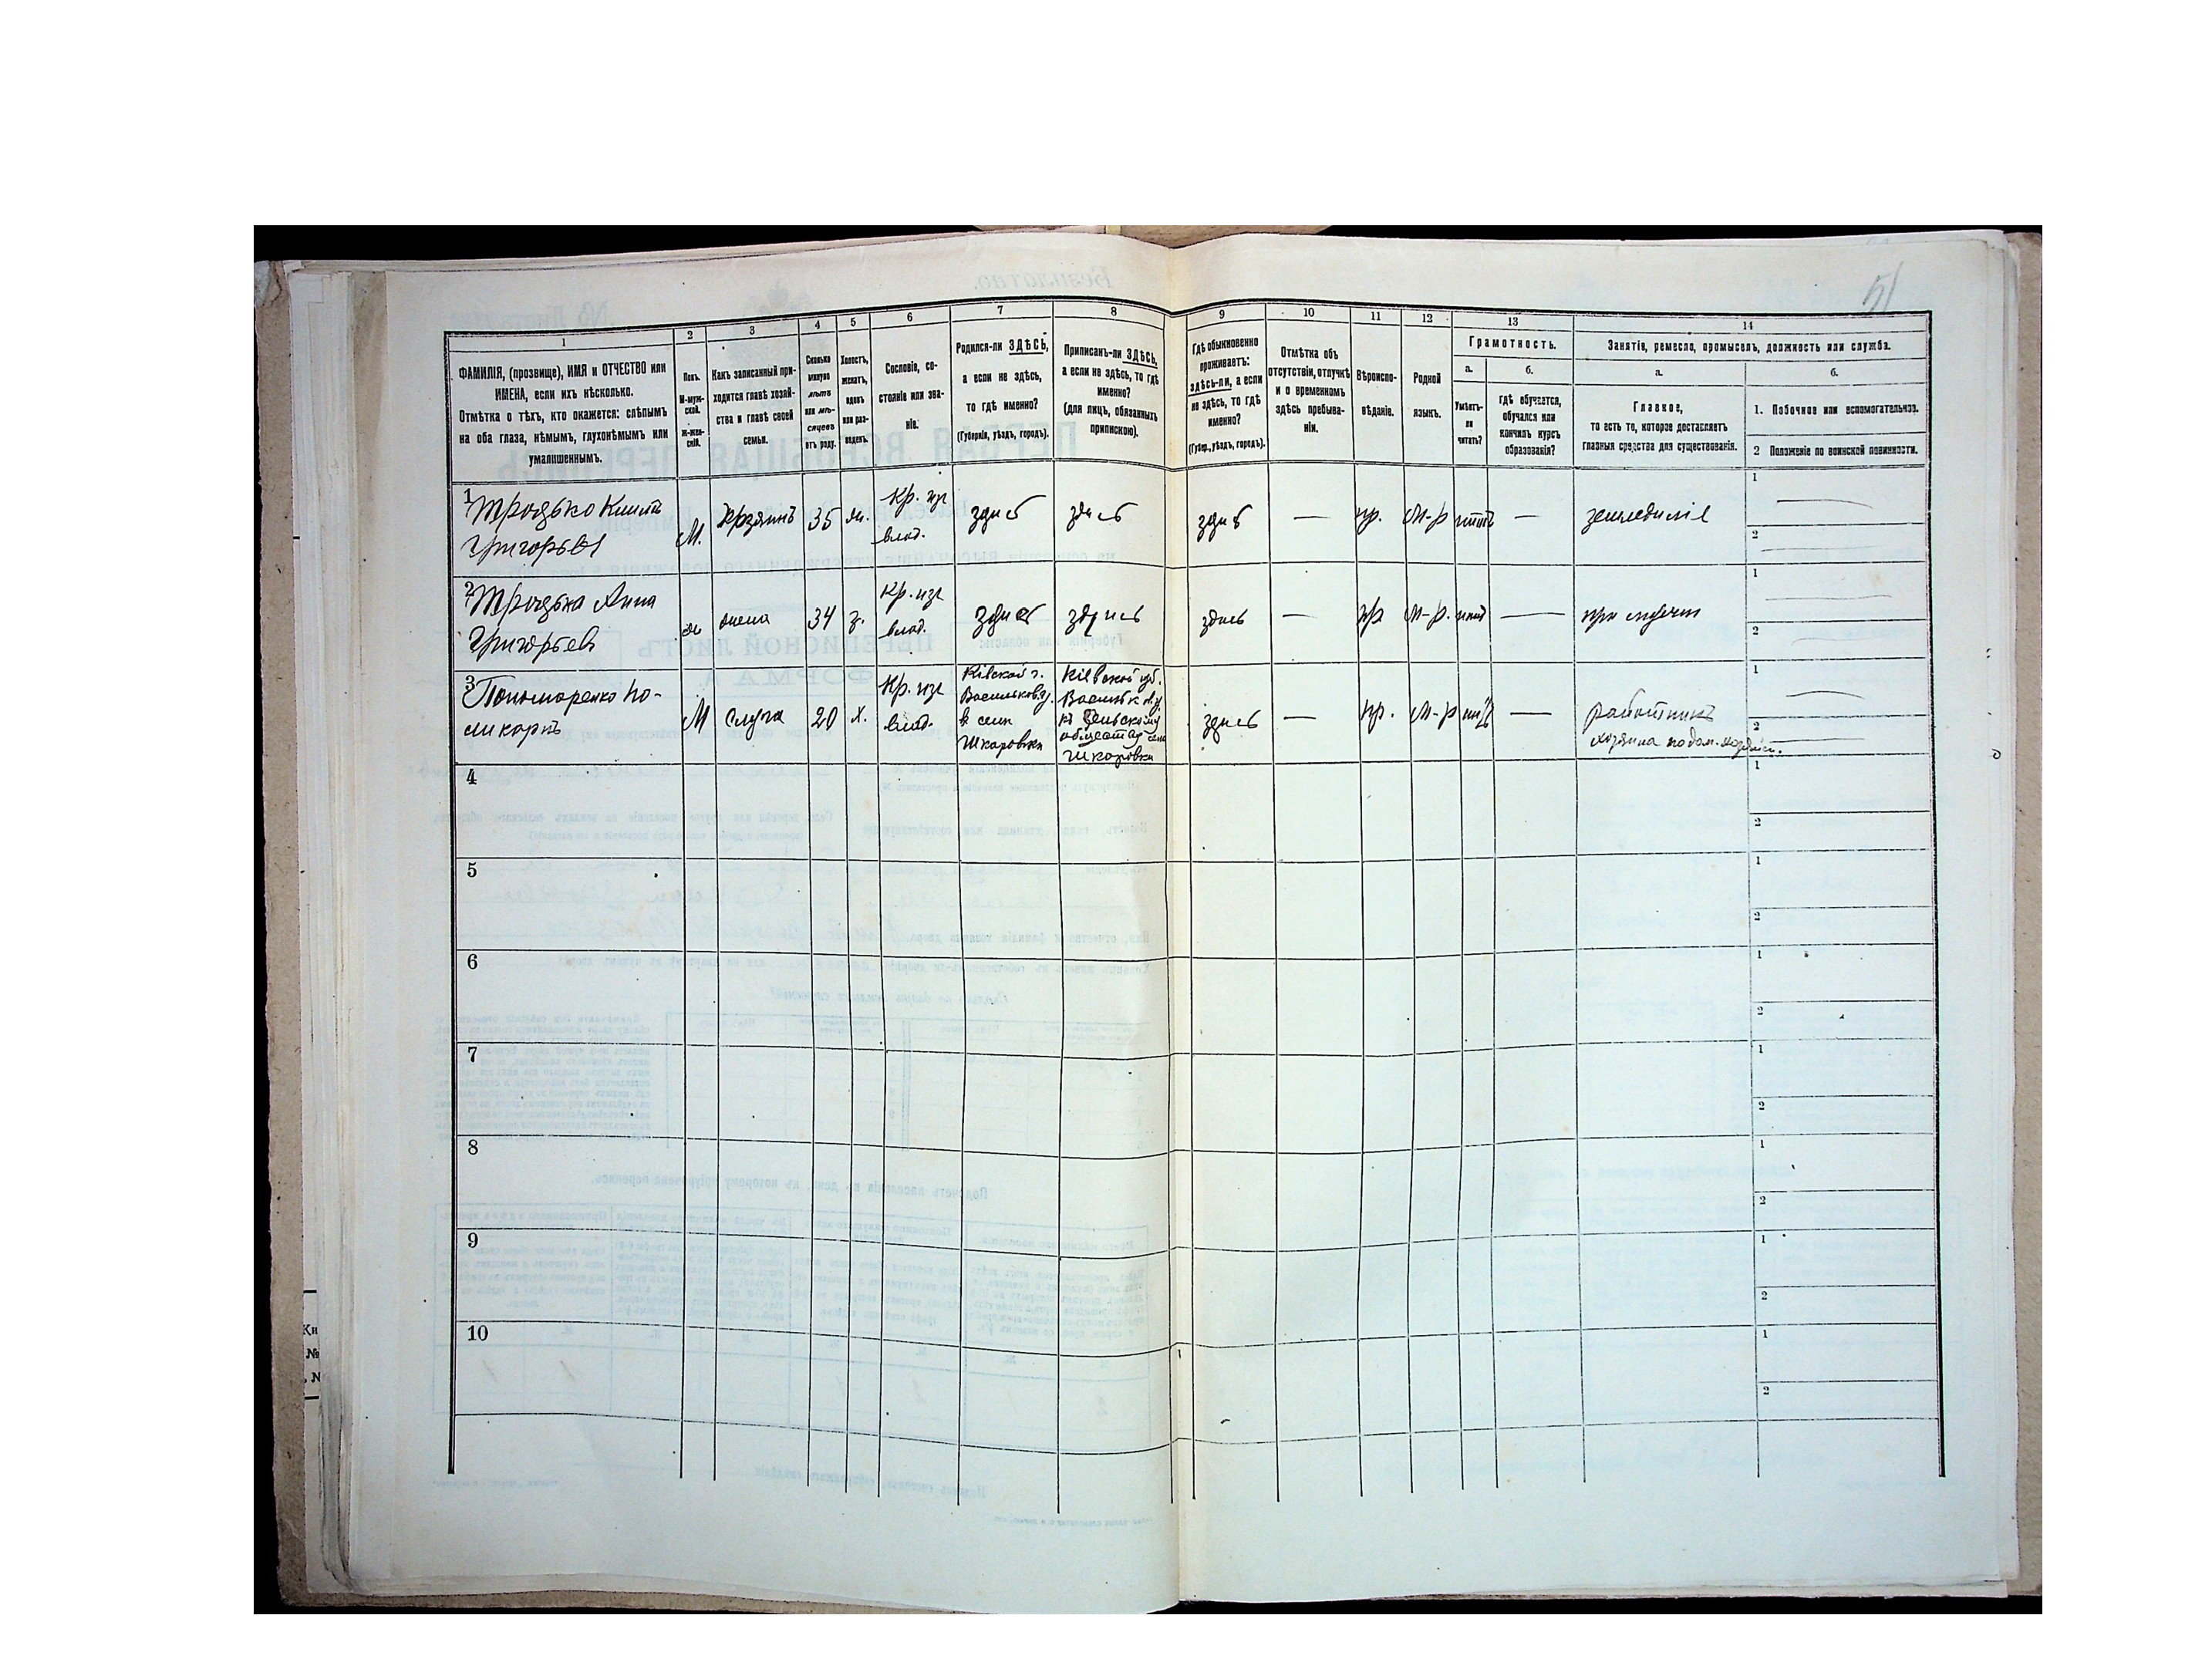 51
1
2
3
4
5
6
7
8
9
10
11
12
13
14
ФАМИЛІЯ, (прозвище), ИМЯ и ОТЧЕСТВО или
ИМЕНА, если ихъ нѣсколько.
Отмѣтка о тѣхъ, кто окажется: слѣпымъ
на оба глаза, нѣмымъ, глухонѣмымъ или
умалишеннымъ.
Полъ.
М-муж-
ской.
Ж-жен-
скій.
Какъ записанный при-
ходится главѣ хозяй-
ства и главѣ своей
семьи.
Сколько
минуло
лѣтъ
или мѣ-
сяцевъ
отъ роду.
Холостъ,
женатъ,
вдовъ
или раз-
веденъ.
Сословіе, со-
стояніе или зва-
ніе.
Родился-ли ЗДѢСЬ,
а если не здѣсь,
то гдѣ именно?
(Губернія, уѣздъ, городъ).
Приписанъ-ли ЗДѢСЬ,
а если не здѣсь, то гдѣ
именно?
(для лицъ, обязанныхъ
припискою).
Гдѣ обыкновенно
проживаетъ:
здѣсь-ли, а если
не здѣсь, то гдѣ
именно?
(Губер., уѣздъ, городъ).
Отмѣтка объ
отсутствіи, отлучкѣ
и о временномъ
здѣсь пребыва-
ніи.
Вѣроиспо-
вѣданіе.
Родной
языкъ.
Грамотность.
а.
Умѣетъ-
ли
читать?
б.
гдѣ обучается,
обучался или
кончилъ курсъ
образованія?
Занятіе, ремесло, промыселъ, должность или служба.
а.
Главное,
то есть то, которое доставляетъ
главныя средства для существованія.
б.
1. Побочное или вспомогательное.
2 Положеніе по воинской повинности.
1 Троцько
Григорьев
М. Хозяинъ 35 ж. Кр. изъ
влад.
здись здись здись — пр. М-р нитъ — земледиліе
1
2
2 Троцька Анна
Григорьев
ж жена 34 з. Кр. изъ
влад.
здись здись здись — пр М-р. нит —
1
2
3 Пономаренко По-
ликарпъ
М Слуга 20 х. Кр. изъ
влад.
Кіевской г.
Васильков. у.
в сели
Шкаровки
Кіевской губ.
Васильков. у.
къ сельскому
Шкаровки
здись — пр. М-р нитъ — работникъ
хозяина по дом. хозяйс.
1
2
4
1
2
5
1
2
6
1
2
7
1
2
8
1
2
9
1
2
10
1
2